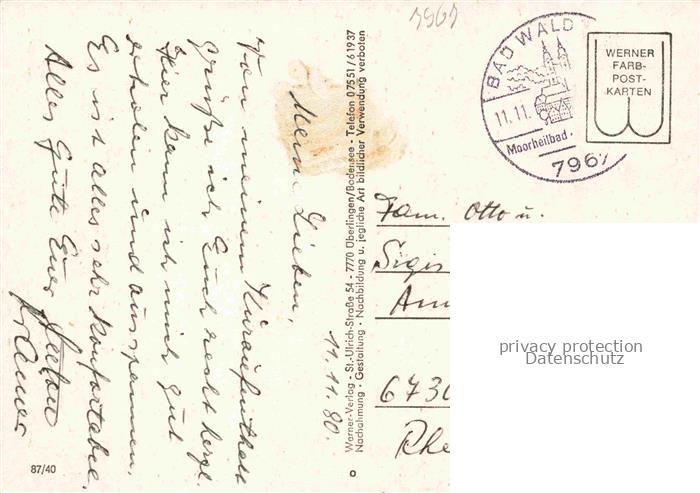 3967
BAD WALD
11.11.
Moorheilbad ·
7967
WERNER
FARB-
POST-
KARTEN
11.11.80.
Meine Lieben,
Von meinem Kuraufenthalt
grüße ich Euch recht herzl.
Hier kann ich mich gut
erholen und ausspannen.
Es ist alles sehr komfortabel.
Alles Gute Euer
Werner-Verlag - St.-Ulrich-Straße 54 - 7770 Überlingen/Bodensee - Telefon 07551/61937
Nachahmung - Gestaltung - Nachbildung u. jegliche Art bildlicher Verwendung verboten
Fam. Otto u.
Sigis
Ann
6730
Rhe
privacy protection
Datenschutz
87/40